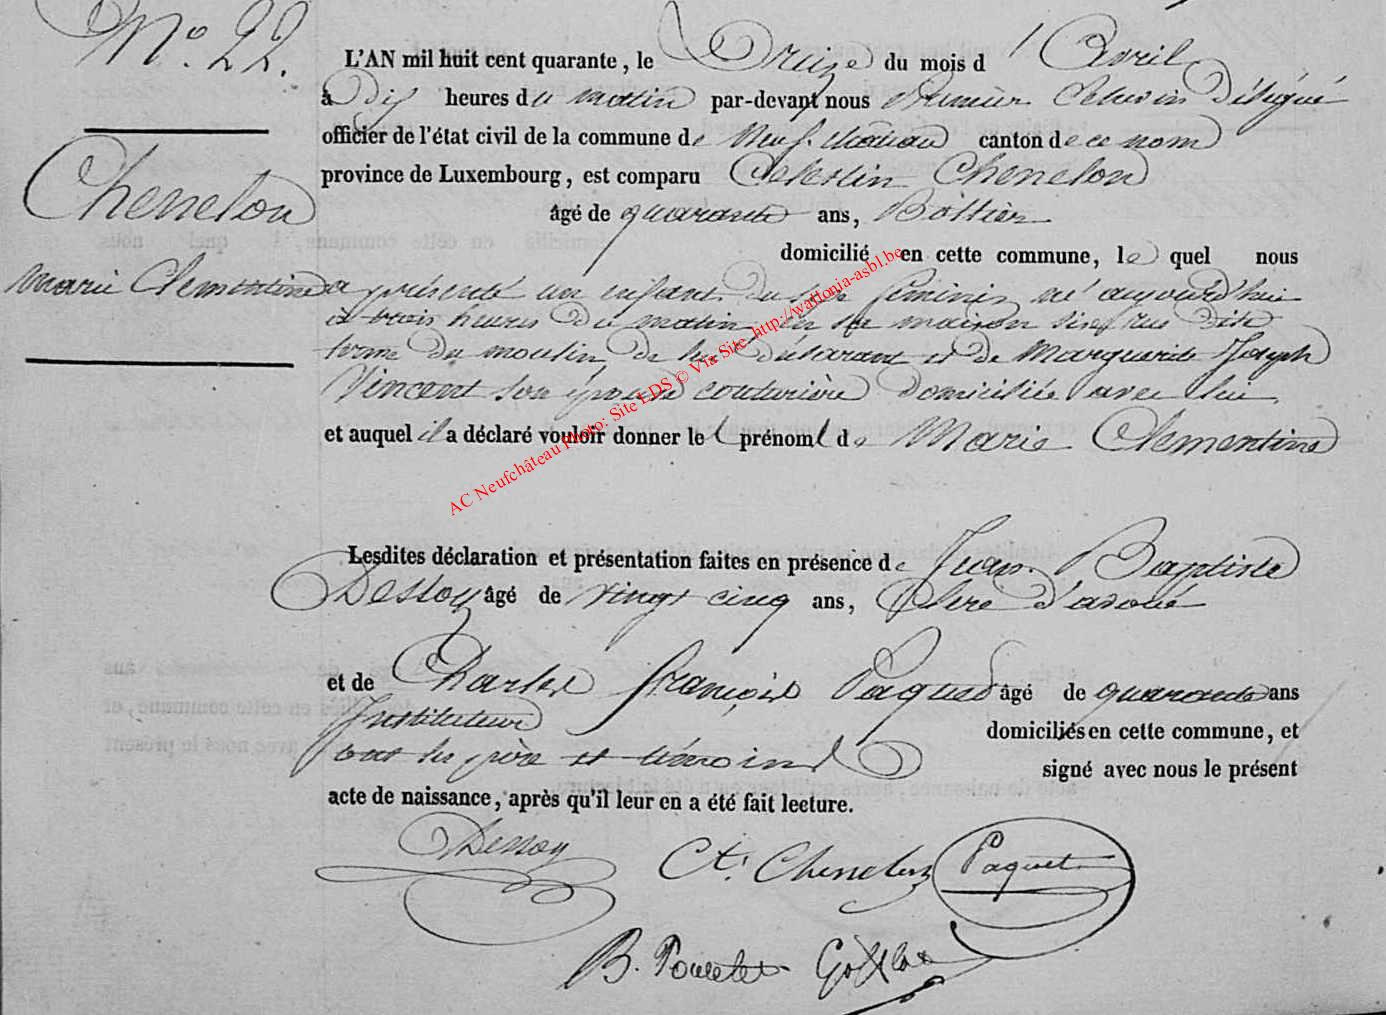 N.º 22.
Chenelon
Marie Clementine
L'AN mil huit cent quarante, le Treize du mois d'Avril
à Dix heures du matin par-devant nous Premier Echevin Délégué
officier de l'état civil de la commune de Neufchateau canton de ce nom
province de Luxembourg, est comparu Celestin Chenelon
âgé de quarante ans, Bottier
domicilié en cette commune, lequel nous
a présenté un enfant du sexe féminin né aujourd'hui
à trois heures du matin en sa maison sise rue dite
terme du moulin de lui déclarant et de Marguerite Joseph
Vincent son épouse couturière domiciliée avec lui
et auquel il a déclaré vouloir donner le prénom de Marie Clementine
Lesdites déclaration et présentation faites en présence de Jean Baptiste
Dessoy âgé de vingt cinq ans, Clerc d'avoué
et de Charles François Paquet âgé de quarante ans
Instituteur
domiciliés en cette commune, et
ont les père et témoins
signé avec nous le présent
acte de naissance, après qu'il leur en a été fait lecture.
Dessoy
Ct. Chenelon
Paquet
B. Poncelet
AC Neufchâteau Photo: Site LDS © Via Site http://wallonia-asbl.be